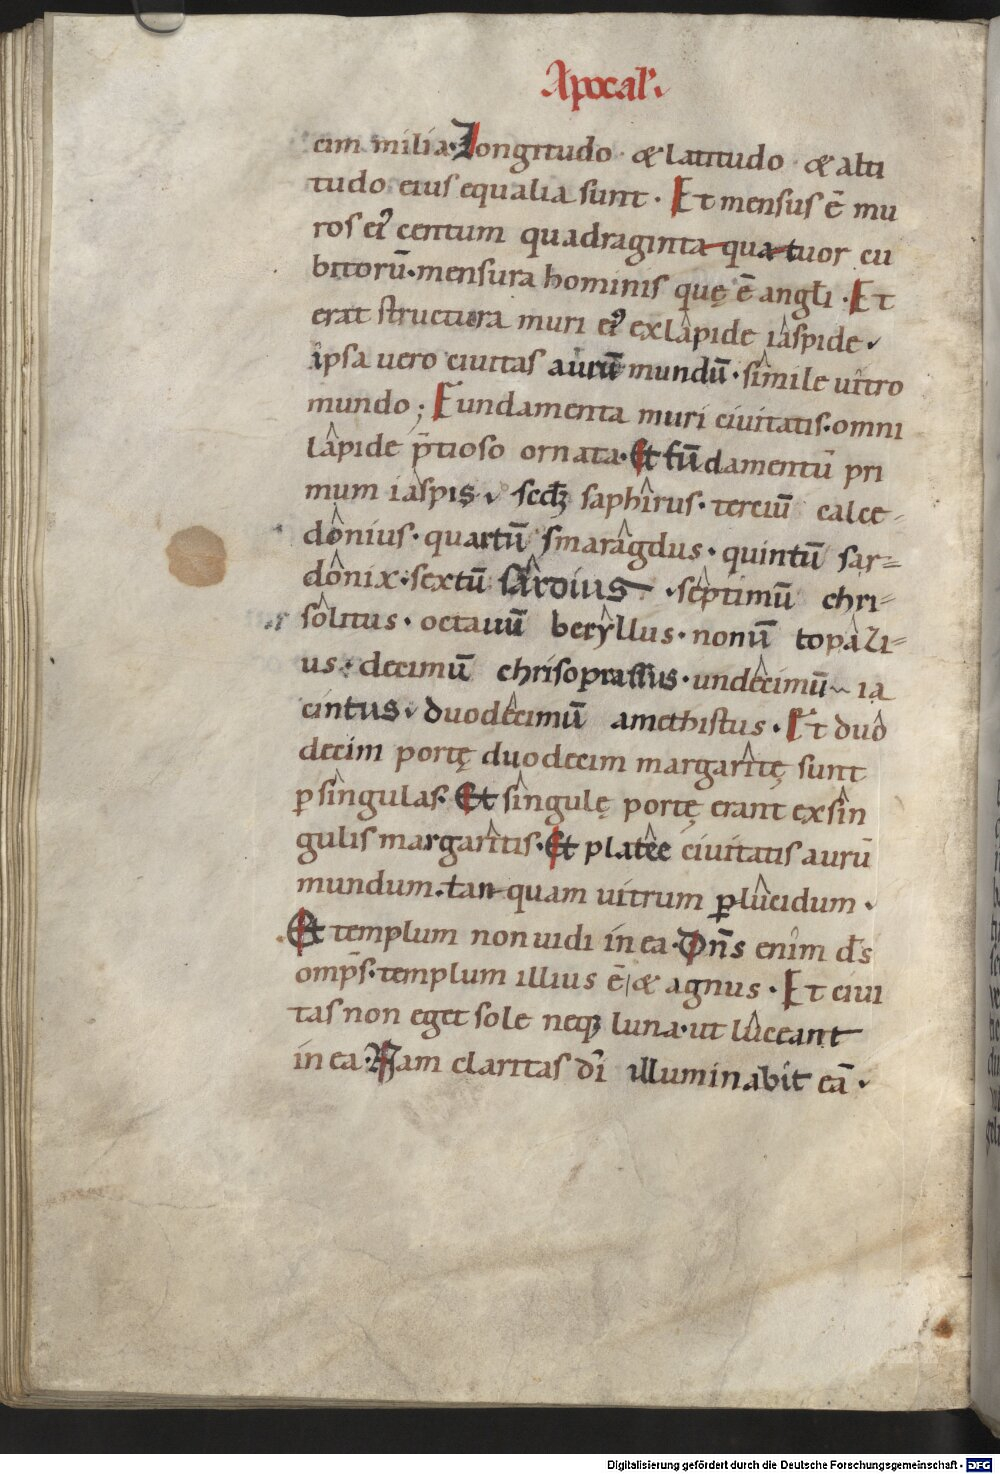 Apocal'.
cim milia. Longitudo · & latitudo · & alti
tudo eius equalia sunt · Et mensus ē mu
ros ei' centum quadraginta quatuor cu
bitorū. mensura hominis quę ē angłi · Et
erat structura muri ei' ex lapide iaspide ·
ipsa uero ciuitas aurū mundū · simile uitro
mundo ; Fundamenta muri ciuitatis. omni
lapide p̄tioso ornata. Et fūdamentū pri
mum iaspis · secđꝫ saphirus · terciū calce-
donius · quartū smaragdus · quintū sar=
donix · sextū sardius · septimū chri=
solitus · octauū beryllus · nonū topazi=
us · decimū chrisoprassus · undecimū ia
cintus · duodecimū amethistus · Et duo
decim portę duodecim margaritę sunt
ꝑ singulas. Et singulę portę erant ex sin
gulis margaritis. Et platee ciuitatis aurū
mundum. tanquam uitrum ꝑlucidum ·
Et templum non uidi in ea. Dn̄s enim d̄s
omp̄s. templum illius ē & agnus · Et ciui
tas non eget sole neqꝫ luna. ut luceant
in ea. Nam claritas dī illuminabit eā ·
Digitalisierung gefördert durch die Deutsche Forschungsgemeinschaft - DFG